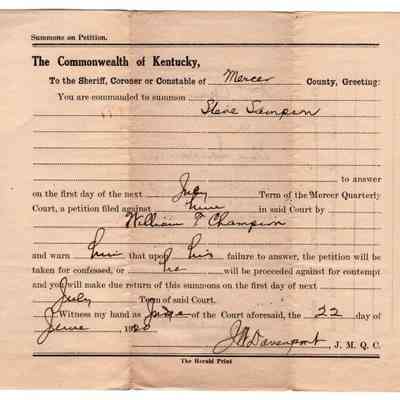 Summons on Petition.
The Commonwealth of Kentucky,
To the Sheriff, Coroner or Constable of Mercer County, Greeting:
You are commanded to summon
Steve Sampson
to answer
on the first day of the next July Term of the Mercer Quarterly
Court, a petition filed against him in said Court by
William T Champion
and warn him that upon his failure to answer, the petition will be
taken for confessed, or he will be proceeded against for contempt
and you will make due return of this summons on the first day of next
July Term of said Court.
Witness my hand as Judge of the Court aforesaid, the 22 day of
June 1920 J W Davenport, J. M. Q. C.
The Herald Print